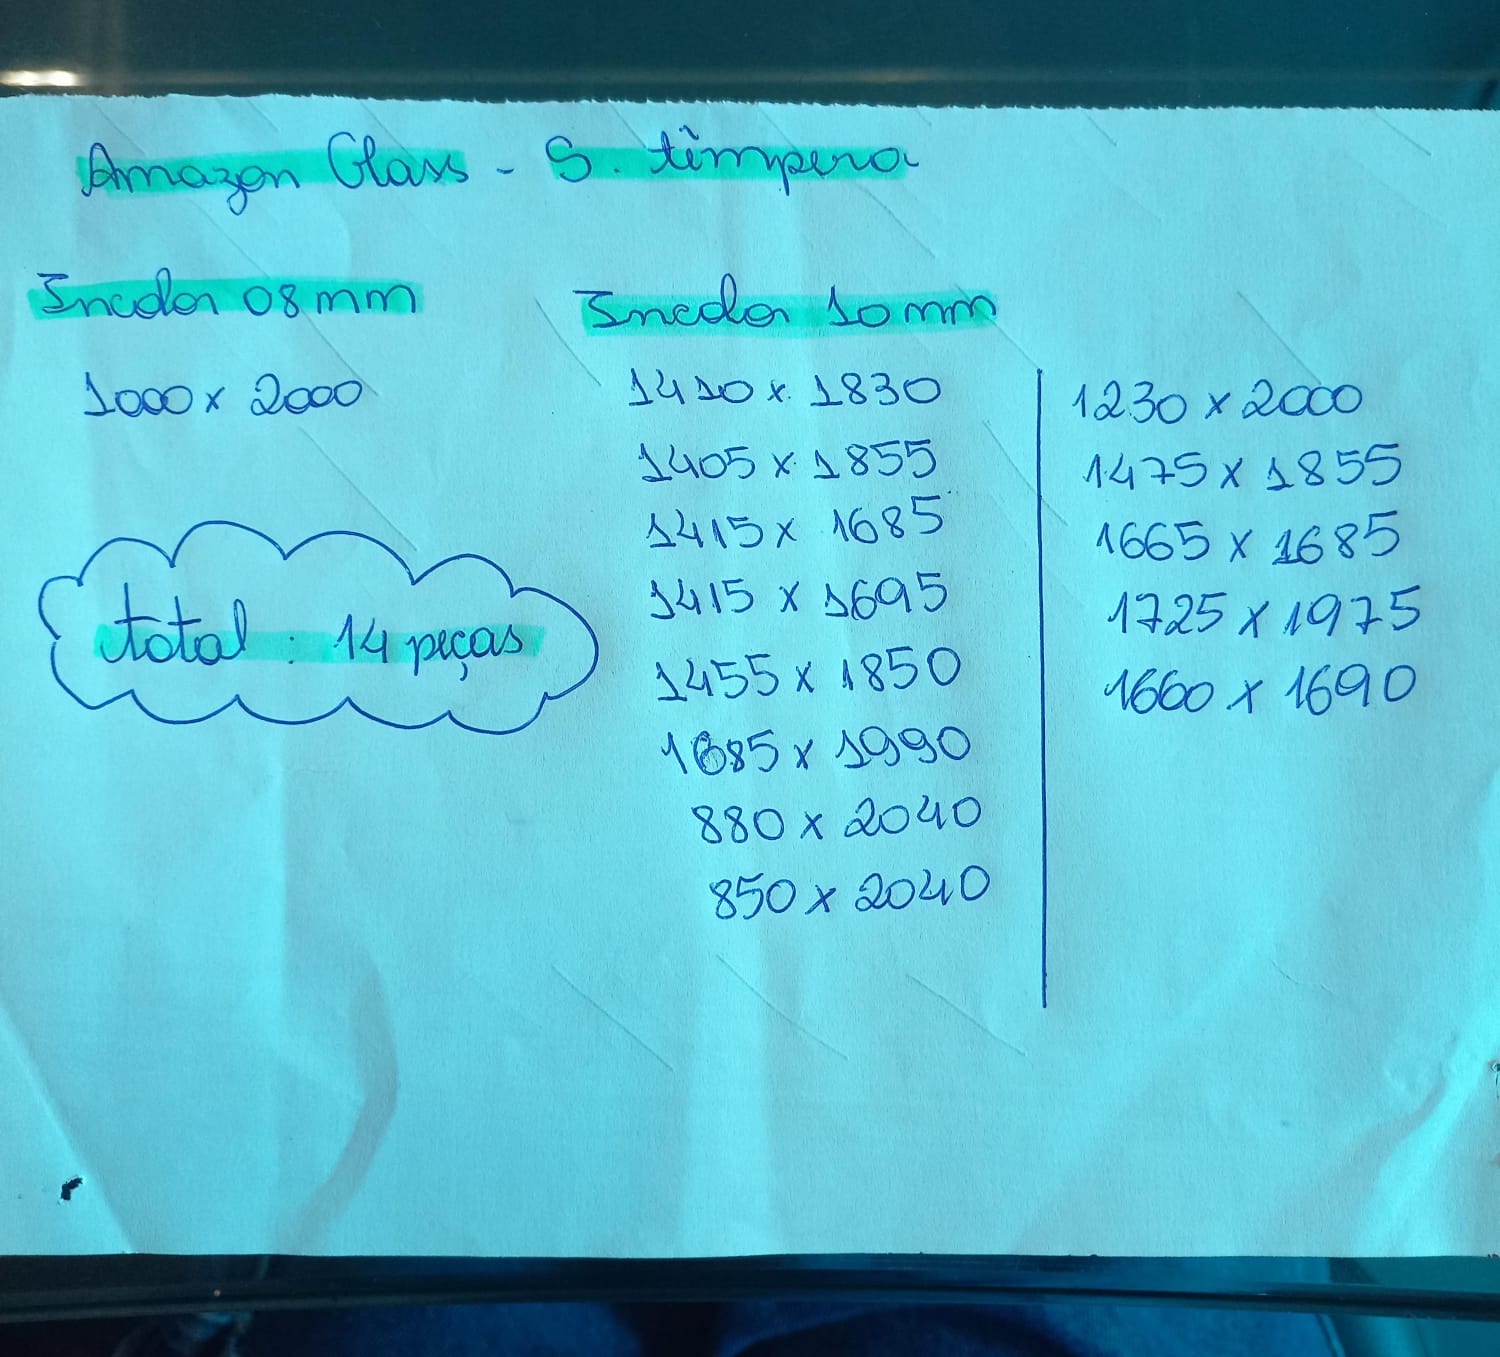 Amazon Glass - S. têmpera
Incolor 08mm
1000 x 2000
total: 14 peças
Incolor 10mm
1410 x 1830
1405 x 1855
1415 x 1685
1415 x 1695
1455 x 1850
1685 x 1990
880 x 2040
850 x 2040
1230 x 2000
1475 x 1855
1665 x 1685
1725 x 1975
1660 x 1690